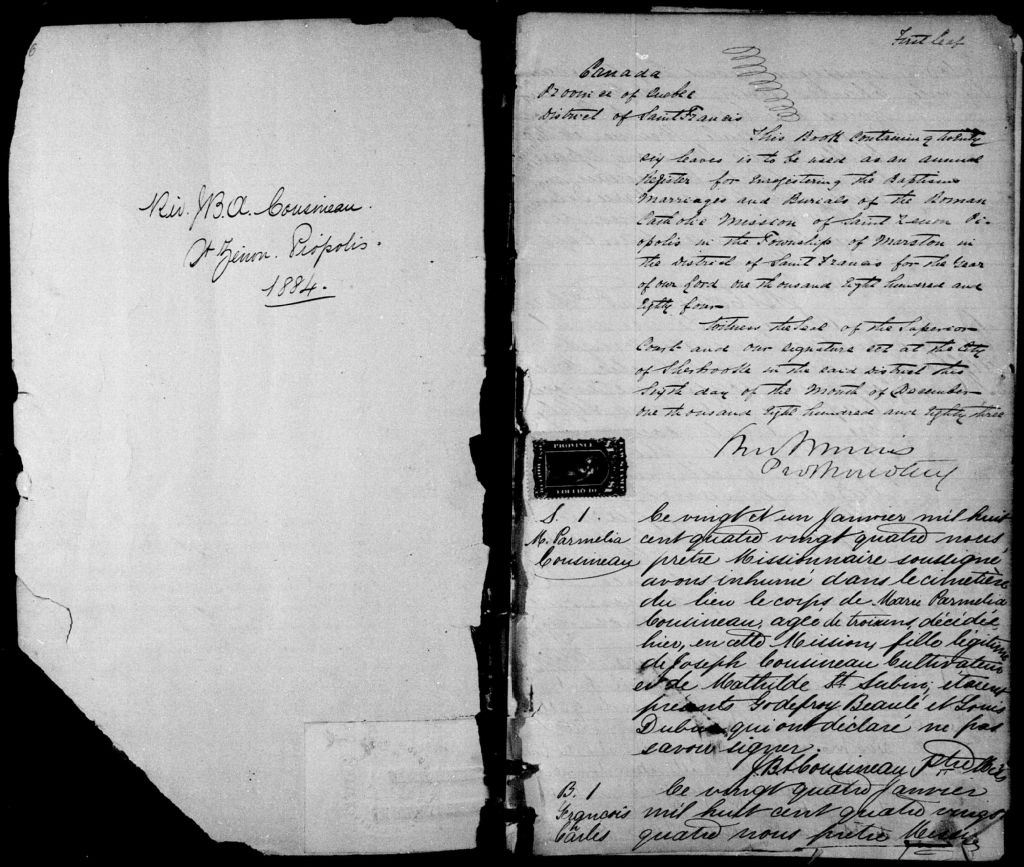 Rév. J.B.A. Cousineau.
St Zénon. Piópolis.
1884.
First leaf
Canada
Province of Quebec
District of Saint Francis
This Book containing twenty
six leaves is to be used as an annual
Register for Enregistering the Baptisms
Marriages and Burials of the Roman
Catholic Mission of Saint Zenon Pi-
opolis in the Township of Marston in
the District of Saint Francis for the Year
of our Lord one thousand Eight hundred and
Eighty four
Witness the Seal of the Superior
Court and our signature set at the City
of Sherbrooke in the said District this
Sixth day of the Month of December
one thousand Eight hundred and Eighty three
PROVINCE
S. 1.
M. Parmelia
Cousineau
Ce vingt et un Janvier mil huit
cent quatre vingt quatre nous
prêtre Missionnaire soussigné
avons inhumé dans le cimetière
du lieu le corps de Marie Parmelia
Cousineau, agée de trois ans, décédée
hier, en cette Mission, fille légitime
de Joseph Cousineau Cultivateur
et de Mathilde St Aubin; étaient
présents Godefroy Beaulé et Louis
qui ont déclaré ne pas
savoir signer.
J.B.A Cousineau Ptre
B. 1
François
Carles
Ce vingt quatre Janvier
mil huit cent quatre vingt
quatre nous prêtre